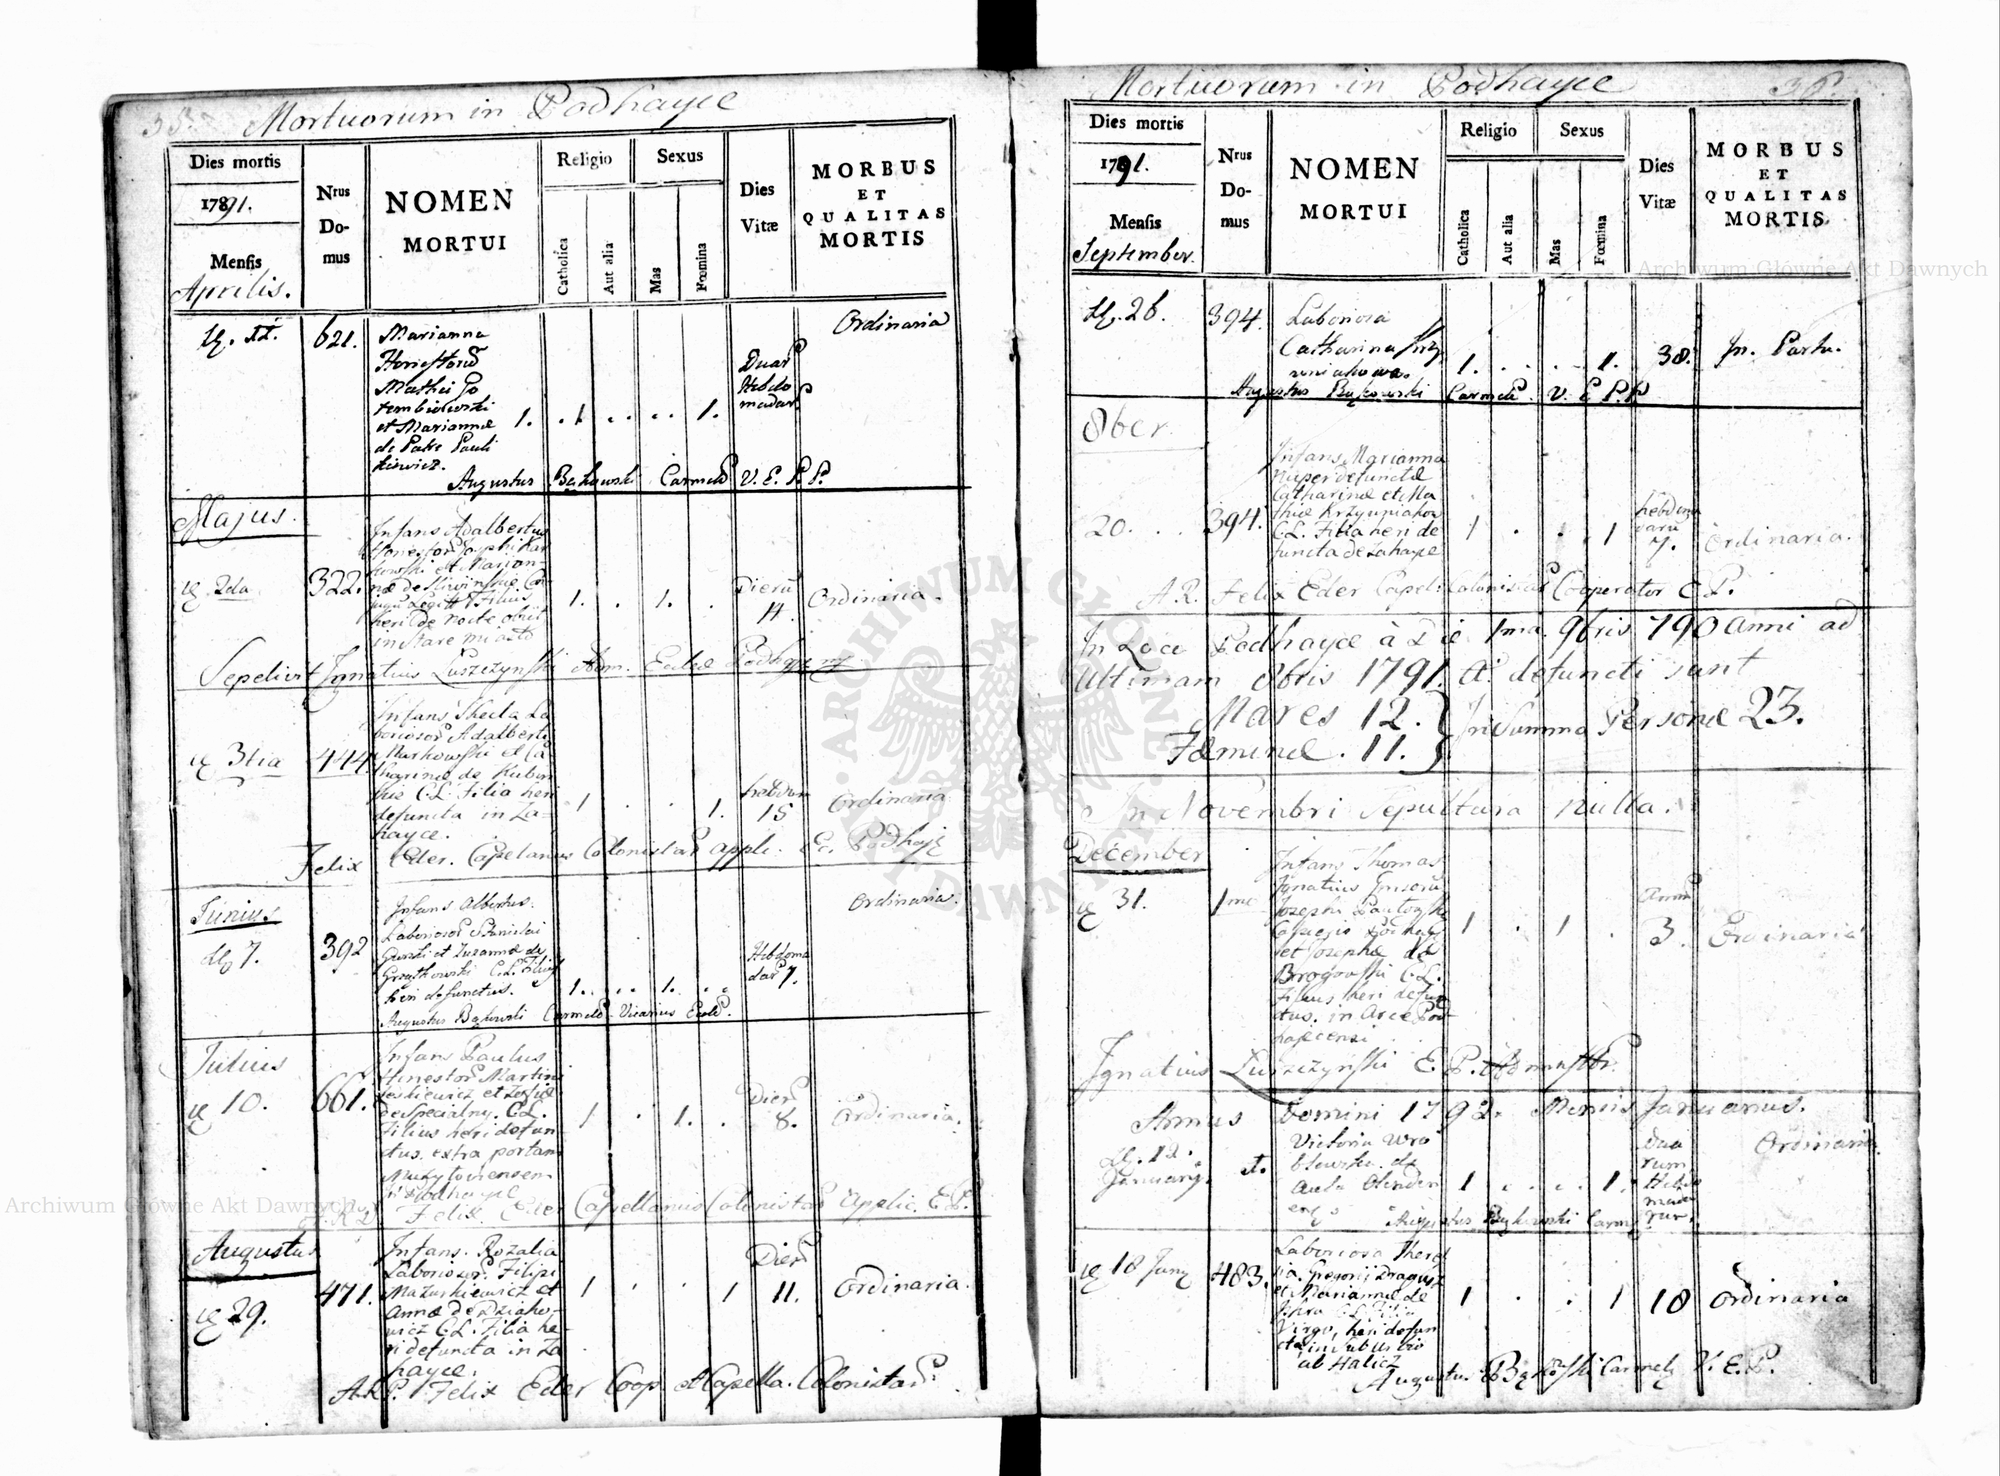 35.
Mortuorum in Podhayce
Dies mortis
1791.
Mensis
Aprilis.
Nrus
Do-
mus
NOMEN
MORTUI
Religio
Catholica
Aut alia
Sexus
Mas
Fœmina
Dies
Vitæ
MORBUS
ET
QUALITAS
MORTIS
621.
Marianna
Mathei Go
rembiowski
et Mariannæ
de Patre Pauli
kiewicz.
1.
1
1.
Duar
Hebdo
madar
Ordinaria
Augustus Bąkowski Carmel V. E. P. P.
Majus.
2da
322.
Infans Adalbertus
Honestor Josephi Kar
kowski et Marian-
næ de Sliwinskie Con
jugu Legitt Filius
heri de nocte obiit
in Stare miasto
1. . 1. .
Dieru
14.
Ordinaria.
Sepelivit Ignatius Luszczynski Adm. Eccl
3tia
444
Infans Thecla La
boriosor Adalberti
Markowski et Ca
tharinæ de Kubin
skie C.L. Filia heri
defuncta in Za-
hayce.
1 . . 1.
hebdom
15
Ordinaria
Felix Eder. Capelanus Colonistar applic. Ec. Podhaj
Junius
7.
392
Infans Albertus.
Laboriosor Stanislai
Gurski et Zuzannæ de
Grzytkowski C.L. Filius
heri defunctus.
1. . . 1. . .
Hebdoma
dar 7.
Ordinaria.
Augustus Bąkowski Carmel Vicarius Eccl.
Julius
10.
661.
Infans Paulus
Honestor Martini
Leskiewicz et Zofiæ
de Specialny. C.L.
Filius heri defun
ctus. extra portam
in Podhayce
1 . 1. .
Dier
8.
Ordinaria.
Felix Eder Capellanus Colonistar Applic. E.P.
Augustus
29.
471.
Infans. Rozalia
Laboriosor. Filipi
Mazurkiewicz et
Annæ de Dziako-
wicz C.L. Filia he-
ri defuncta in Za
hayce.
1 . . 1
Dier
11.
Ordinaria.
A.R.P. Felix Eder Coop. A Capella. Colonistar.
Mortuorum in Podhayce
36.
Dies mortis
1791.
Mensis
September.
Nrus
Do-
mus
NOMEN
MORTUI
Religio
Catholica
Aut alia
Sexus
Mas
Fœmina
Dies
Vitæ
MORBUS
ET
QUALITAS
MORTIS.
26.
394.
Laboriosa
Catharina Krzy
wniakowa.
1. . . 1.
38.
In. Partu.
Augustus Bąkowski Carmel. V. E. P. P
8ber
20.
394.
Infans Marianna
nuper defunctæ
Catharinæ et Ma
thiæ Krzywniakow
C.L. Filia heri de
functa de Zahayce
1 . . 1
hebdoma
daru
7.
Ordinaria.
A.R. Felix Eder Capel: Colonistar Cooperator E.P.
In Loco Podhayce à Die 1ma 9bris 790 anni ad
Ultimam 8bris 1791. A. defuncti sunt
Mares 12.
Fæminæ. 11.
In Summa Personæ 23.
In Novembri Sepultura nulla.
December
31.
1mo
Infans Thomas
Ignatius
Josephi
et Josephæ de
Brogowski C.L.
Filius heri defun
ctus. in Arce Pod
hajecensi
1 . 1 .
Annor
3.
Ordinaria
Ignatius Luszczynski E. P. Administr.
Annus Domini 1792. Mensis Januarius.
12.
January.
1.
Victoria Wro
blewska de
1 . . . 1.
Dua
rum
Hebdo
mada
rum.
Ordinaria.
Augustus Bąkowski Carm
18 Jany
483.
Laboriosa There
sia. Gregorii Dragusz
et Mariannæ de
C.L. Filia
Virgo, heri defun
cta in suburbio
ab Halicz
1 . . 1
18
Ordinaria
Augustus Bąkowski Carmel V. E. P.
Archiwum Główne Akt Dawnych
Archiwum Główne Akt Dawnych
ARCHIWUM GŁÓWNE AKT DAWNYCH